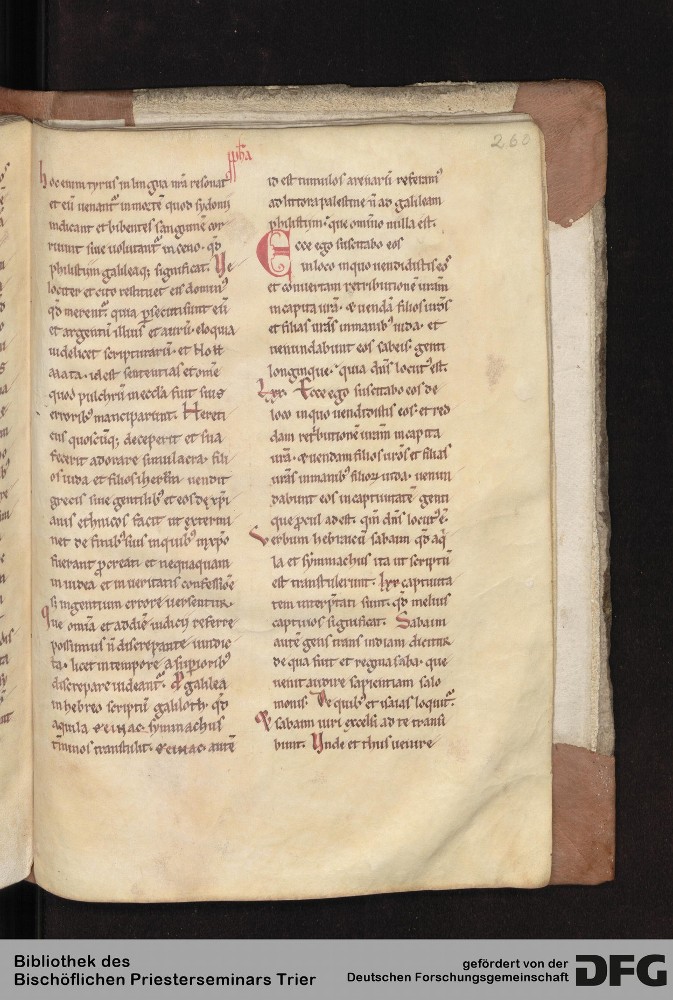 260
hoc enim tyrus in lingua nr̄a resonat
et eū uenantᷣ in mortē quod sydonii
indicant et bibentes sanguinē cor
ruunt siue uolutantᷣ in ceno. qd̄
philistiim galileaq; significat. Ve
lociter et cito restituet eis dominꝰ
qd̄ merentᷣ. quia ꝑsecuti sunt eū
et argentū illius et aurū. eloquia
uidelicet scripturarū. et
id est sententias et omē
quod pulchrū in eccl̄a fuit suis
erroribꝰ manciparunt. Hereti
cus quoscūq; deceperit et sua
fecerit adorare simulacra. fili
os iuda et filios hierl̄m uendit
grecis siue gentilibꝰ et eos de xp̄i
anis ethnicos facit ut extermi
net de finibꝰ suis in quibꝰ in xp̄o
fuerant ꝓcreati et nequaquam
in iudea et in ueritatis confessiōe
s; in gentium errore uersentur.
Que omīa et ad diē iudicii referre
possumus n̄ discrepante iudic
ta. licet in tempore a supioribꝰ
discrepare uideantᷣ. P galilea
in hebreo scriptū galiloth. qd̄
aquila symmachus
tminos transtulit. autē
id est tumulos arenarū referamꝰ
ad littora palestine n̄ ad galileam
philistiim. que omnino nulla est.
Ecce ego suscitabo eos
in loco in quo uendidistis eos
et conuertam retributionē uram̄
in capita ur̄a. & uendā filios ur̄os
et filias ur̄as in manibꝰ iuda. et
uenundabunt eos sabeis. genti
longinque. quia dn̄s locutꝰ est.
Lxx. Ecce ego suscitabo eos de
loco in quo uendidistis eos. et red
dam retributionē uram̄ in capita
ur̄a. & uendam filios ur̄os et filias
ur̄as in manibꝰ filiorū iuda. uenun
dabunt eos in captiuitatē genti
que ꝓcul adest. qm̄ dn̄s locutꝰ ē.
Verbum hebraicū sabaim qd̄ aqi
la et symmachus ita ut scriptū
est transtulerunt. lxx captiuita
tem interp̄tati sunt. qd̄ melius
captiuos significat. Sabaim
autē gens trans indiam dicitur
de qua fuit et regina saba. que
uenit audire sapientiam salo
monis. De quibꝰ et isaias loquitᷣ.
sabaim uiri excelsi ad te transi
bunt. Vnde et thus uenire
Bibliothek des
Bischöflichen Priesterseminars Trier
gefördert von der
Deutschen Forschungsgemeinschaft
DFG